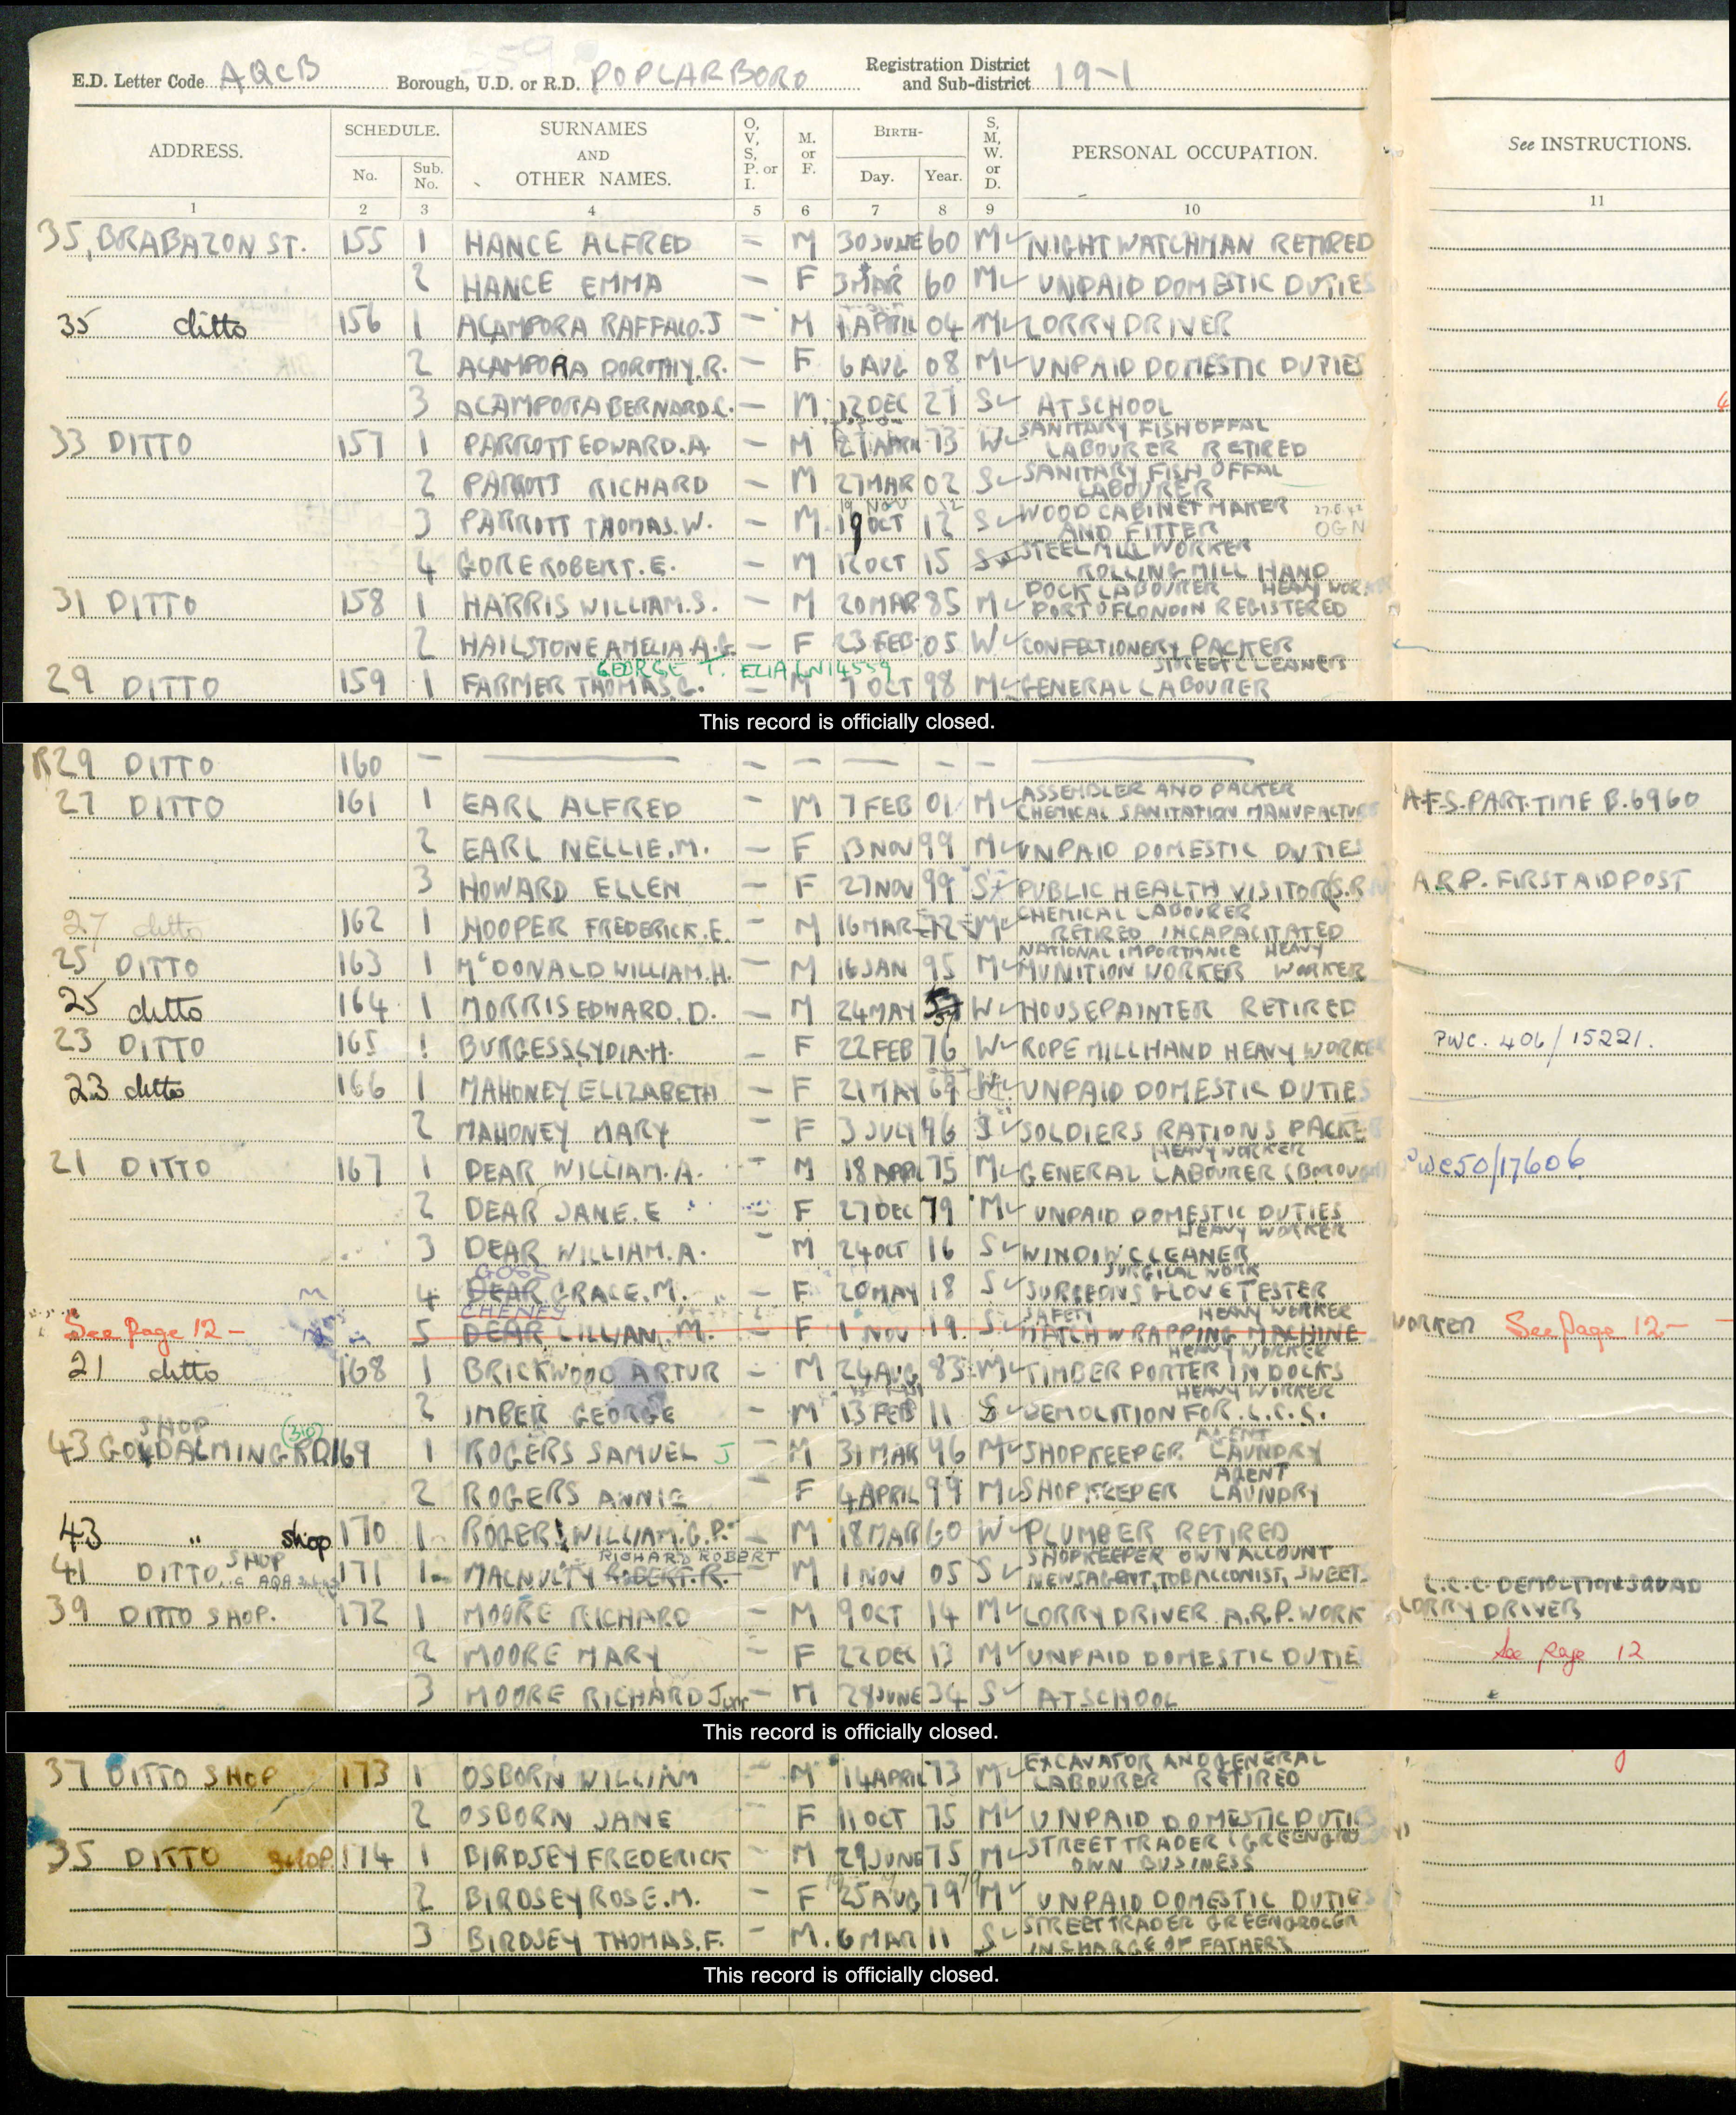 E.D. Letter Code AQCB Borough, U.D. or R.D. POPLAR BORO Registration District and Sub-district 19-1
ADDRESS. SCHEDULE. No. Sub. No. SURNAMES AND OTHER NAMES. O, V, S, P. or I. M. or F. BIRTH- Day. Year. S, M, W. or D. PERSONAL OCCUPATION. See INSTRUCTIONS.
1 2 3 4 5 6 7 8 9 10 11
35, BRABAZON ST. 155 1 HANCE ALFRED – M 30 JUNE 60 M NIGHT WATCHMAN RETIRED
2 HANCE EMMA – F 3 MAR 60 M UNPAID DOMESTIC DUTIES
35 ditto 156 1 ACAMPORA RAFFALO.J – M 1 APRIL 04 M LORRY DRIVER
2 ACAMPORA DOROTHY.R. – F 6 AUG 08 M UNPAID DOMESTIC DUTIES
3 ACAMPORA BERNARD.C. – M 12 DEC 27 S AT SCHOOL
33 DITTO 157 1 PARROTT EDWARD.A – M 27 APRIL 73 W SANITARY FISH OFFAL LABOURER RETIRED
2 PARROTT RICHARD – M 27 MAR 02 S SANITARY FISH OFFAL LABOURER
19 NOV 12
3 PARROTT THOMAS.W. – M 19 OCT 12 S WOOD CABINET MAKER AND FITTER OGN
4 GORE ROBERT.E. – M 12 OCT 15 S STEEL MILL WORKER ROLLING MILL HAND
31 DITTO 158 1 HARRIS WILLIAM.S. – M 20 MAR 85 M DOCK LABOURER HEAVY WORKER PORT OF LONDON REGISTERED
2 HAILSTONE AMELIA.A.G – F 23 FEB 05 W CONFECTIONERY PACKER
GEORGE T. STREET CLEANER
29 DITTO 159 1 FARMER THOMAS.G. – M 7 OCT 98 M GENERAL LABOURER
This record is officially closed.
R29 DITTO 160 – – – – – –
27 DITTO 161 1 EARL ALFRED – M 7 FEB 01 M ASSEMBLER AND PACKER CHEMICAL SANITATION MANUFACTURE A.F.S. PART. TIME B.6960
2 EARL NELLIE.M. – F 13 NOV 99 M UNPAID DOMESTIC DUTIES
3 HOWARD ELLEN – F 27 NOV 99 S PUBLIC HEALTH VISITOR (S.R.N A.R.P. FIRST AID POST
27 ditto 162 1 HOOPER FREDERICK.E. – M 16 MAR 72 M CHEMICAL LABOURER RETIRED INCAPACITATED
25 DITTO 163 1 McDONALD WILLIAM.H. – M 16 JAN 95 M NATIONAL IMPORTANCE HEAVY MUNITION WORKER WORKER
25 ditto 164 1 MORRIS EDWARD.D. – M 24 MAY 57 W HOUSEPAINTER RETIRED
23 DITTO 165 1 BURGESS LYDIA.H. – F 22 FEB 76 W ROPE MILLHAND HEAVY WORKER PWC. 406/15221.
23 ditto 166 1 MAHONEY ELIZABETH – F 21 MAY 69 W UNPAID DOMESTIC DUTIES
2 MAHONEY MARY – F 3 JULY 96 S SOLDIERS RATIONS PACKER
21 DITTO 167 1 DEAR WILLIAM.A. – M 18 APRIL 75 M HEAVY WORKER GENERAL LABOURER (BOROUGH) PWC50/17606
2 DEAR JANE.E – F 27 DEC 79 M UNPAID DOMESTIC DUTIES
3 DEAR WILLIAM.A. – M 24 OCT 16 S HEAVY WORKER WINDIW CLEANER
GOSS
4 DEAR GRACE.M. – F 20 MAY 18 S SURGICAL WORK SURGEONS GLOVE TESTER
CHENEY
See page 12 – 5 DEAR LILLIAN.M. – F 1 NOV 19 S SAFETY HEAVY WORKER MATCH WRAPPING MACHINE WORKER See page 12 –
21 ditto 168 1 BRICKWOOD ARTUR – M 24 AUG 83 M HEAVY WORKER TIMBER PORTER IN DOCKS
2 IMBER GEORGE – M 13 FEB 11 S HEAVY WORKER DEMOLITION FOR L.C.C.
SHOP (310)
43 GODALMING RD 169 1 ROGERS SAMUEL J – M 31 MAR 96 M SHOPKEEPER AGENT LAUNDRY
2 ROGERS ANNIE – F 4 APRIL 99 M SHOPKEEPER AGENT LAUNDRY
43 " shop 170 1 ROGERS WILLIAM.G.P. – M 18 MAR 60 W PLUMBER RETIRED
RICHARD ROBERT
41 DITTO SHOP 171 1 MACNULTY ROBERT.R. – M 1 NOV 05 S SHOPKEEPER OWN ACCOUNT NEWSAGENT, TOBACCONIST, SWEETS
39 DITTO SHOP. 172 1 MOORE RICHARD – M 9 OCT 14 M LORRY DRIVER A.R.P. WORK L.C.C. DEMOLTION SQUAD LORRY DRIVER
2 MOORE MARY – F 22 DEC 13 M UNPAID DOMESTIC DUTIE See page 12
3 MOORE RICHARD Junr – M 28 JUNE 34 S AT SCHOOL
This record is officially closed.
37 DITTO SHOP 173 1 OSBORN WILLIAM – M 14 APRIL 73 M EXCAVATOR AND GENERAL LABOURER RETIRED
2 OSBORN JANE – F 11 OCT 75 M UNPAID DOMESTIC DUTIES
35 DITTO SHOP 174 1 BIRDSEY FREDERICK – M 29 JUNE 75 M STREET TRADER (GREENGRO OWN BUSINESS
2 BIRDSEY ROSE.M. – F 25 AUG 79 M UNPAID DOMESTIC DUTIES
3 BIRDSEY THOMAS.F. – M. 6 MAR 11 S STREET TRADER GREENGROCER IN CHARGE OF FATHERS
This record is officially closed.